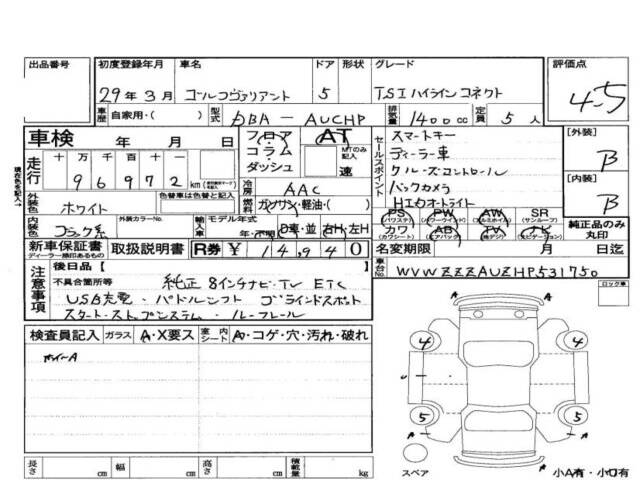 出品番号
初度登録年月 車名 ドア 形状 グレード 評価点
29年3月 ゴールフヴァリアント 5 TSI ハイライン コネクト 4.5
車歴 自家用・( ) 型式 DBA - AUCHP 排気量 1400cc 定員 5人
車検 年 月 日
フロア コラム ダッシュ
AT
MTのみ記入
速
セールスポイント
スマートキー
ディーラー車
クルーズコントロール
バックカメラ
HIDオートライト
[外装] B
[内装] B
走行 十 万 千 百 十 一
96972 km
現在色を記入→
冷房 AAC
外装色 ホワイト 色替車は色替と記入
燃料 ガソリン・軽油・( )
内装色 ブラック系 外装カラーNo.
輸入車 モデル年式 年・不明 D車・並 右H・左H
PS (パワステ) PW (パワーウインド) AW (アルミホイル) SR (サンルーフ)
カワ (カワシート) AB (エアバッグ) TV (純デジ) ナビ (ナビゲーション)
純正品のみ丸印
新車保証書 ディーラー捺印あるもの 取扱説明書 R券 ¥14,940
名変期限 月 日迄
車台No. WVWZZZAUZHP531750
注意事項
後日品[ ]
不具合箇所等
純正 8インチナビ・TV ETC
USB充電・パドルシフト ブラインドスポット
スタート・ストップシステム・ルーフレール
ロック車
検査員記入 ガラス A・X要ス 室内シート A・コゲ・穴・汚れ・破れ
ホイールA
4 4
5 5
スペア
小A有・小U有
長さ cm 幅 cm 高さ cm 積載量 kg